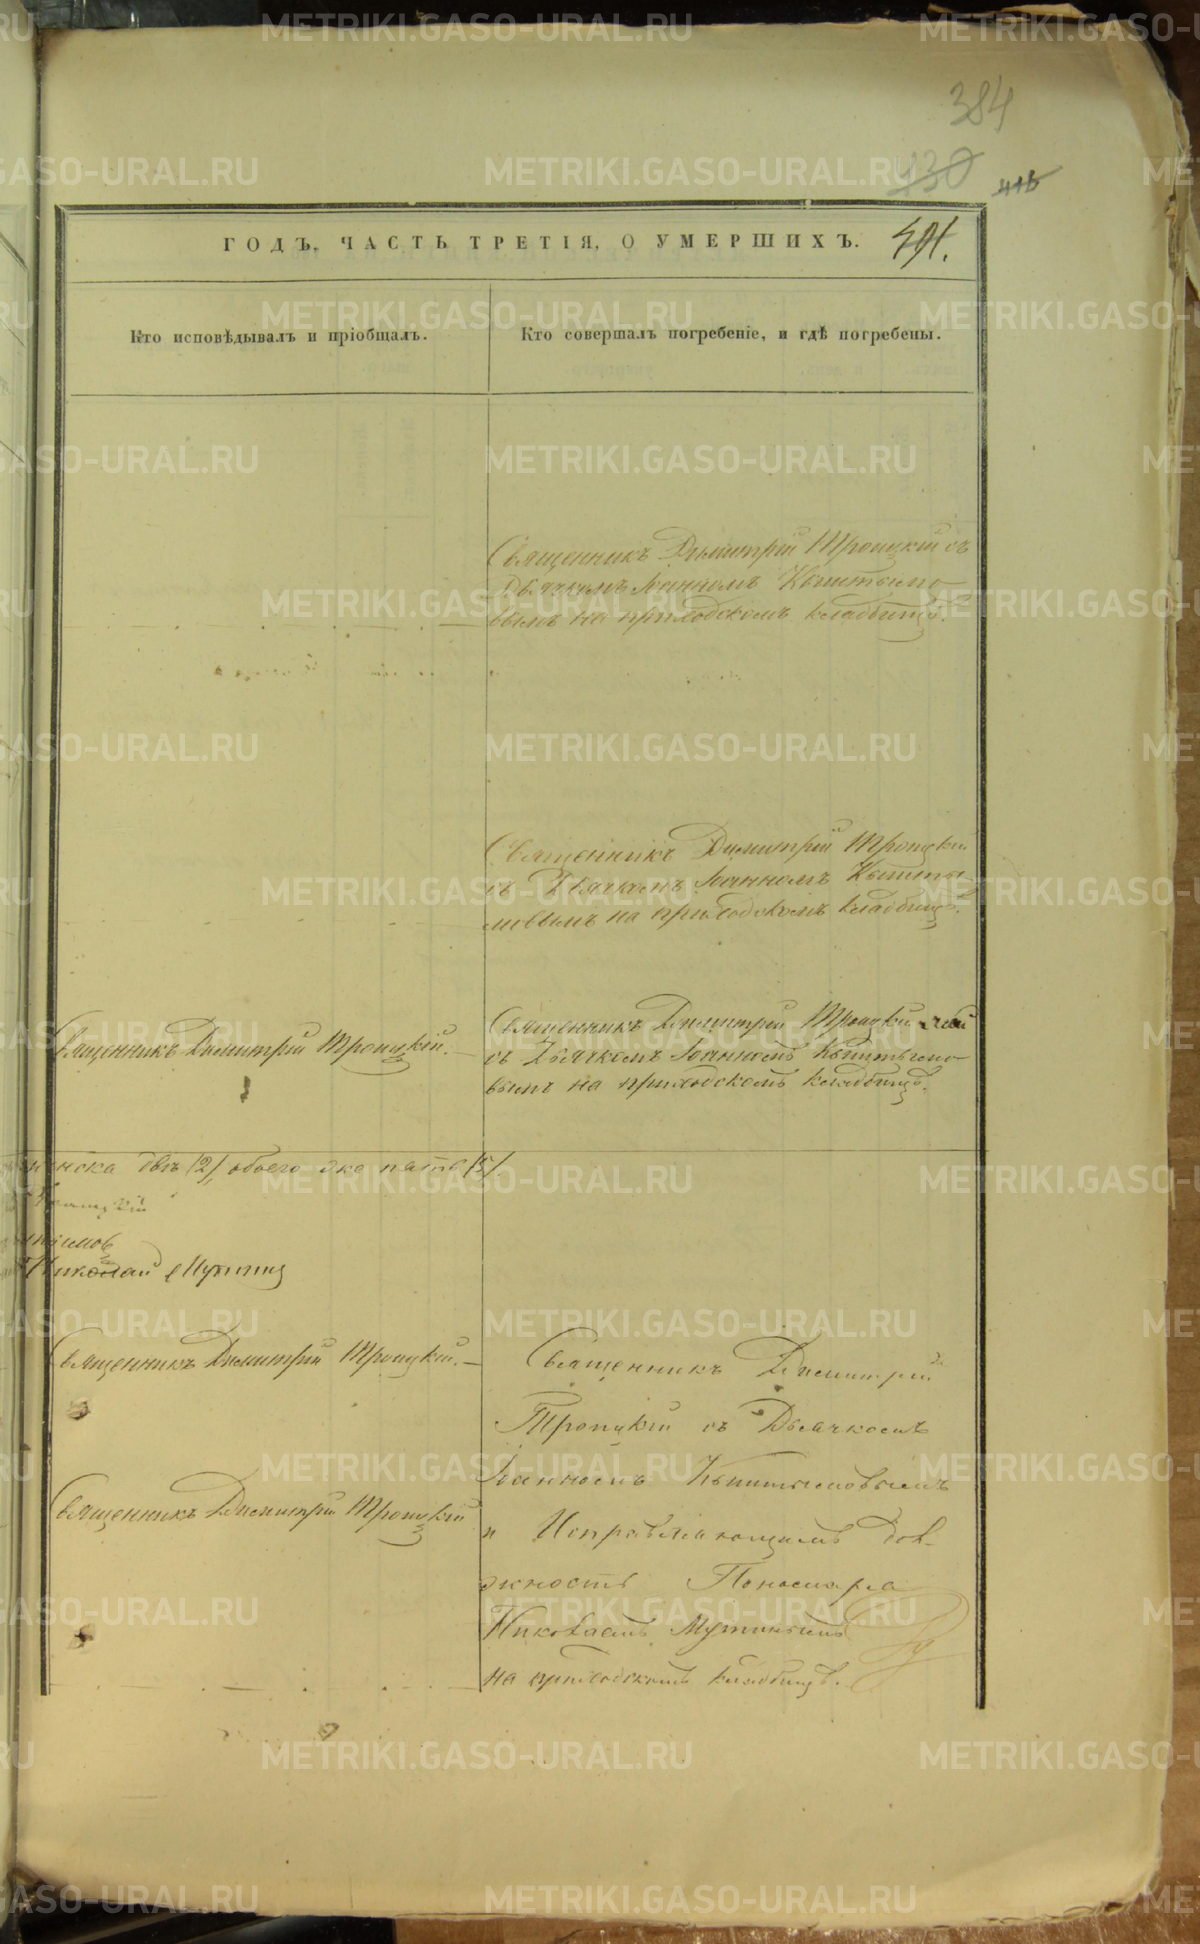 384
430
415
ГОДЪ. ЧАСТЬ ТРЕТІЯ, О УМЕРШИХЪ.
491.
Кто исповѣдывалъ и пріобщалъ.
Кто совершалъ погребеніе, и гдѣ погребены.
Священникъ Димитрій Троицкій съ
Дьячкомъ Іоанномъ Кыштымо-
вымъ на приходскомъ кладбищѣ.
Священникъ Димитрій Троицкій
съ Дьячкомъ Іоанномъ Кышты-
мовымъ на приходскомъ кладбищѣ.
Священникъ Димитрій Троицкій.
Священникъ Димитрій Троицкій
съ Дьячкомъ Іоанномъ Кыштымо-
вымъ на приходскомъ кладбищѣ.
женска двѣ /2/, обоего же пять /5/.
Троицкій
Николай Мутинъ
Священникъ Димитрій Троицкій.
Священникъ Димитрій Троицкій
Священникъ Димитрій
Троицкій съ Дьячкомъ
Іоанномъ Кыштымовымъ
и Исправляющимъ дол-
жность Пономаря
Николаемъ Мутинымъ
на приходскомъ кладбищѣ.
METRIKI.GASO-URAL.RU